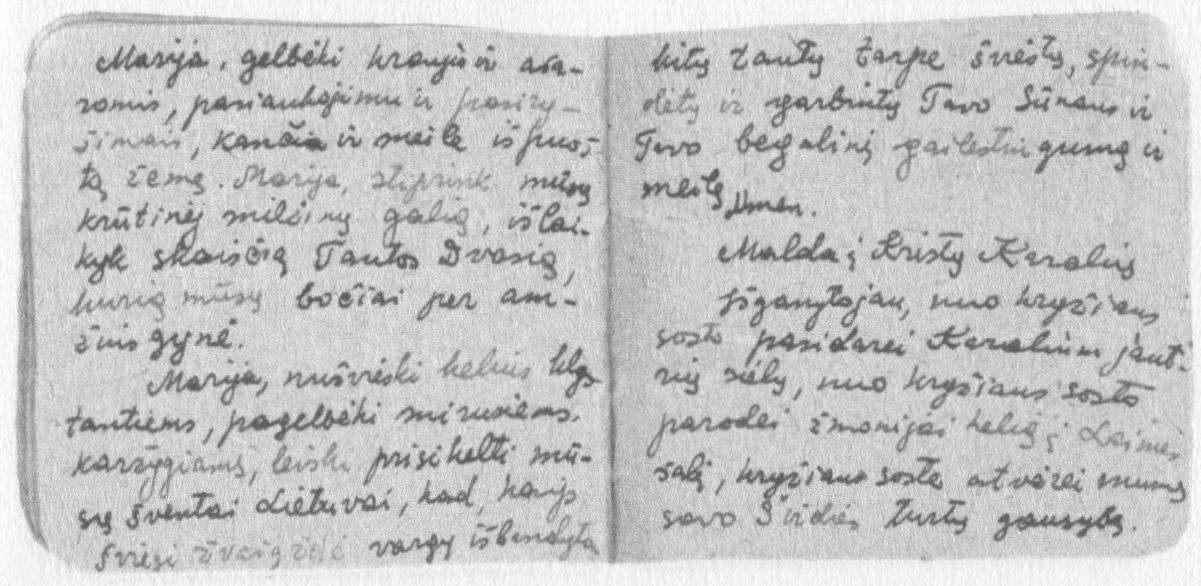 Marija, gelbėki krauju ir aša-
romis, pasiaukojimu ir pasiry-
žimais, kančia ir meile išpuoš-
tą žemę. Marija, stiprink mūsų
krūtinėj milžinų galią, išlai-
kyk skaisčią Tautos Dvasią,
kurią mūsų bočiai per am-
žius gynė.
Marija, nušvieski kelius klys-
tantiems, pagelbėki mirusiems
karžygiams, leiski prisikelti mū-
sų šventai Lietuvai, kad, kaip
šviesi žvaigždė vargų išbandyta
kitų tautų tarpe šviestų, spin-
dėtų ir garbintų Tavo Sūnaus ir
Tavo begalinį gailestingumą ir
meilę. Amen.
Malda į Kristų Karalių
Išganytojau, nuo kryžiaus
sosto pasidarei Karalium jaut-
rių sielų, nuo kryžiaus sosto
parodei žmonijai kelią į Laimės
šalį, kryžiaus soste atvėrei mums
savo Širdies turtų gausybę.